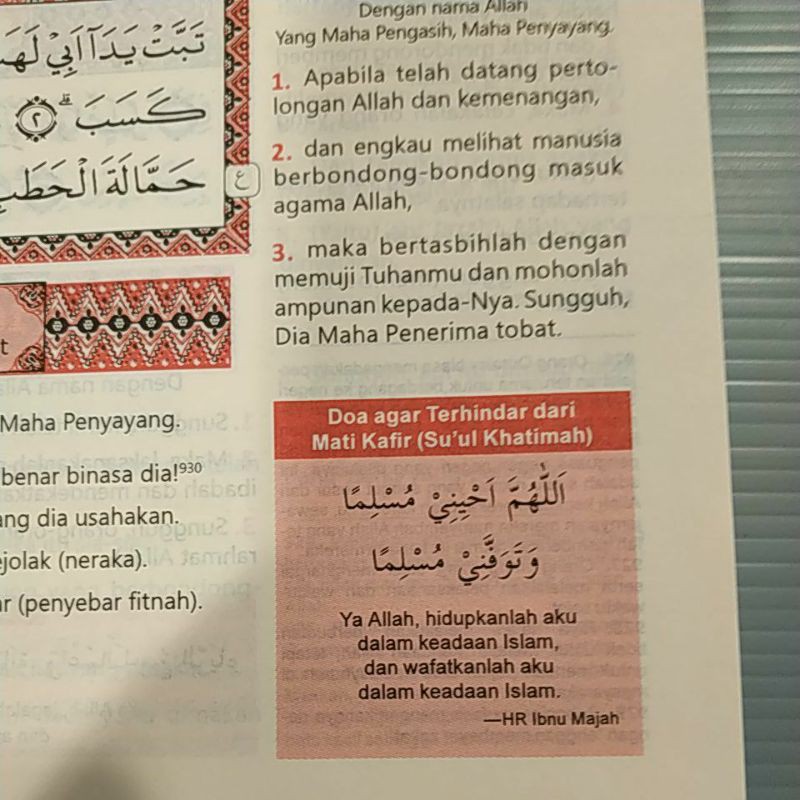 تَبَّتْ يَدَآ اَبِيْ
كَسَبَۗ ٢
حَمَّالَةَ الْحَطَبِ
ع
t
Maha Penyayang.
benar binasa dia!930
ang dia usahakan.
ejolak (neraka).
ar (penyebar fitnah).
Dengan nama Allah
Yang Maha Pengasih, Maha Penyayang.
1. Apabila telah datang perto-
longan Allah dan kemenangan,
2. dan engkau melihat manusia
berbondong-bondong masuk
agama Allah,
3. maka bertasbihlah dengan
memuji Tuhanmu dan mohonlah
ampunan kepada-Nya. Sungguh,
Dia Maha Penerima tobat.
Doa agar Terhindar dari
Mati Kafir (Su'ul Khatimah)
اَللّٰهُمَّ اَحْيِنِيْ مُسْلِمًا
وَتَوَفَّنِيْ مُسْلِمًا
Ya Allah, hidupkanlah aku
dalam keadaan Islam,
dan wafatkanlah aku
dalam keadaan Islam.
—HR Ibnu Majah